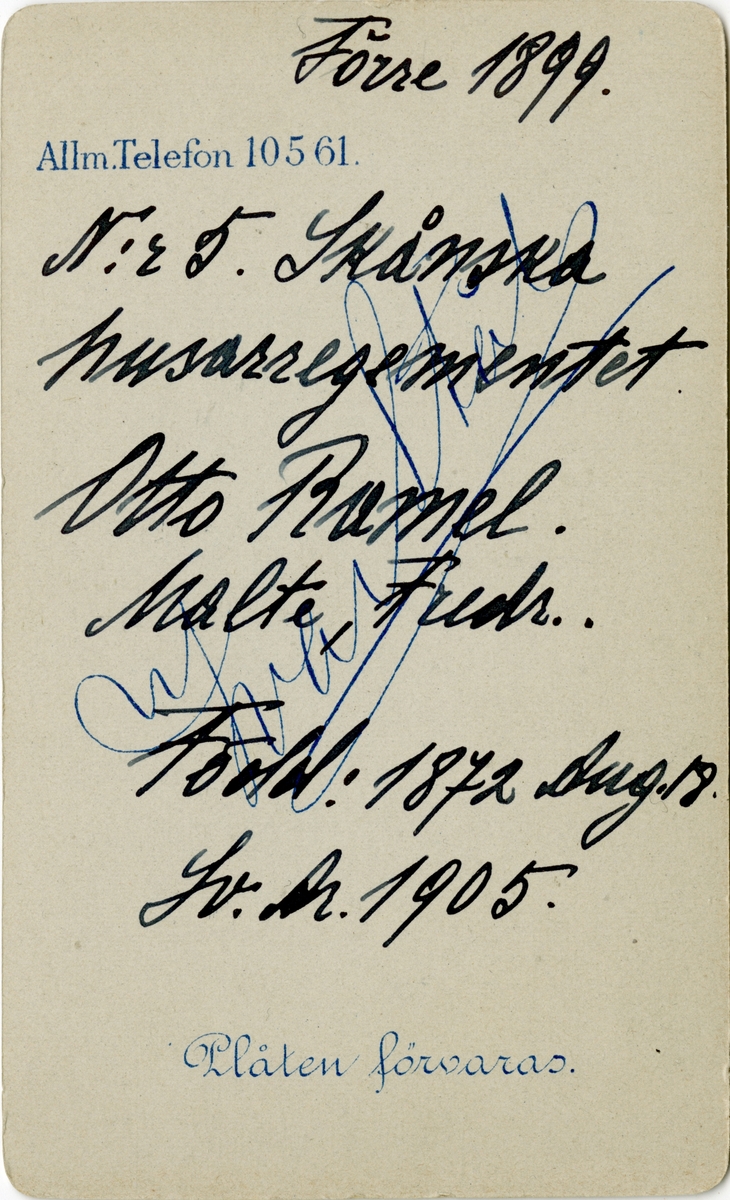 Förre 1899.
Allm. Telefon 10561.
N:r 5. Skånska
husarregementet
Otto Ramel.
Malte, Fredr..
Född: 1872 Aug. 18.
Sv. Ar. 1905.
Plåten förvaras.